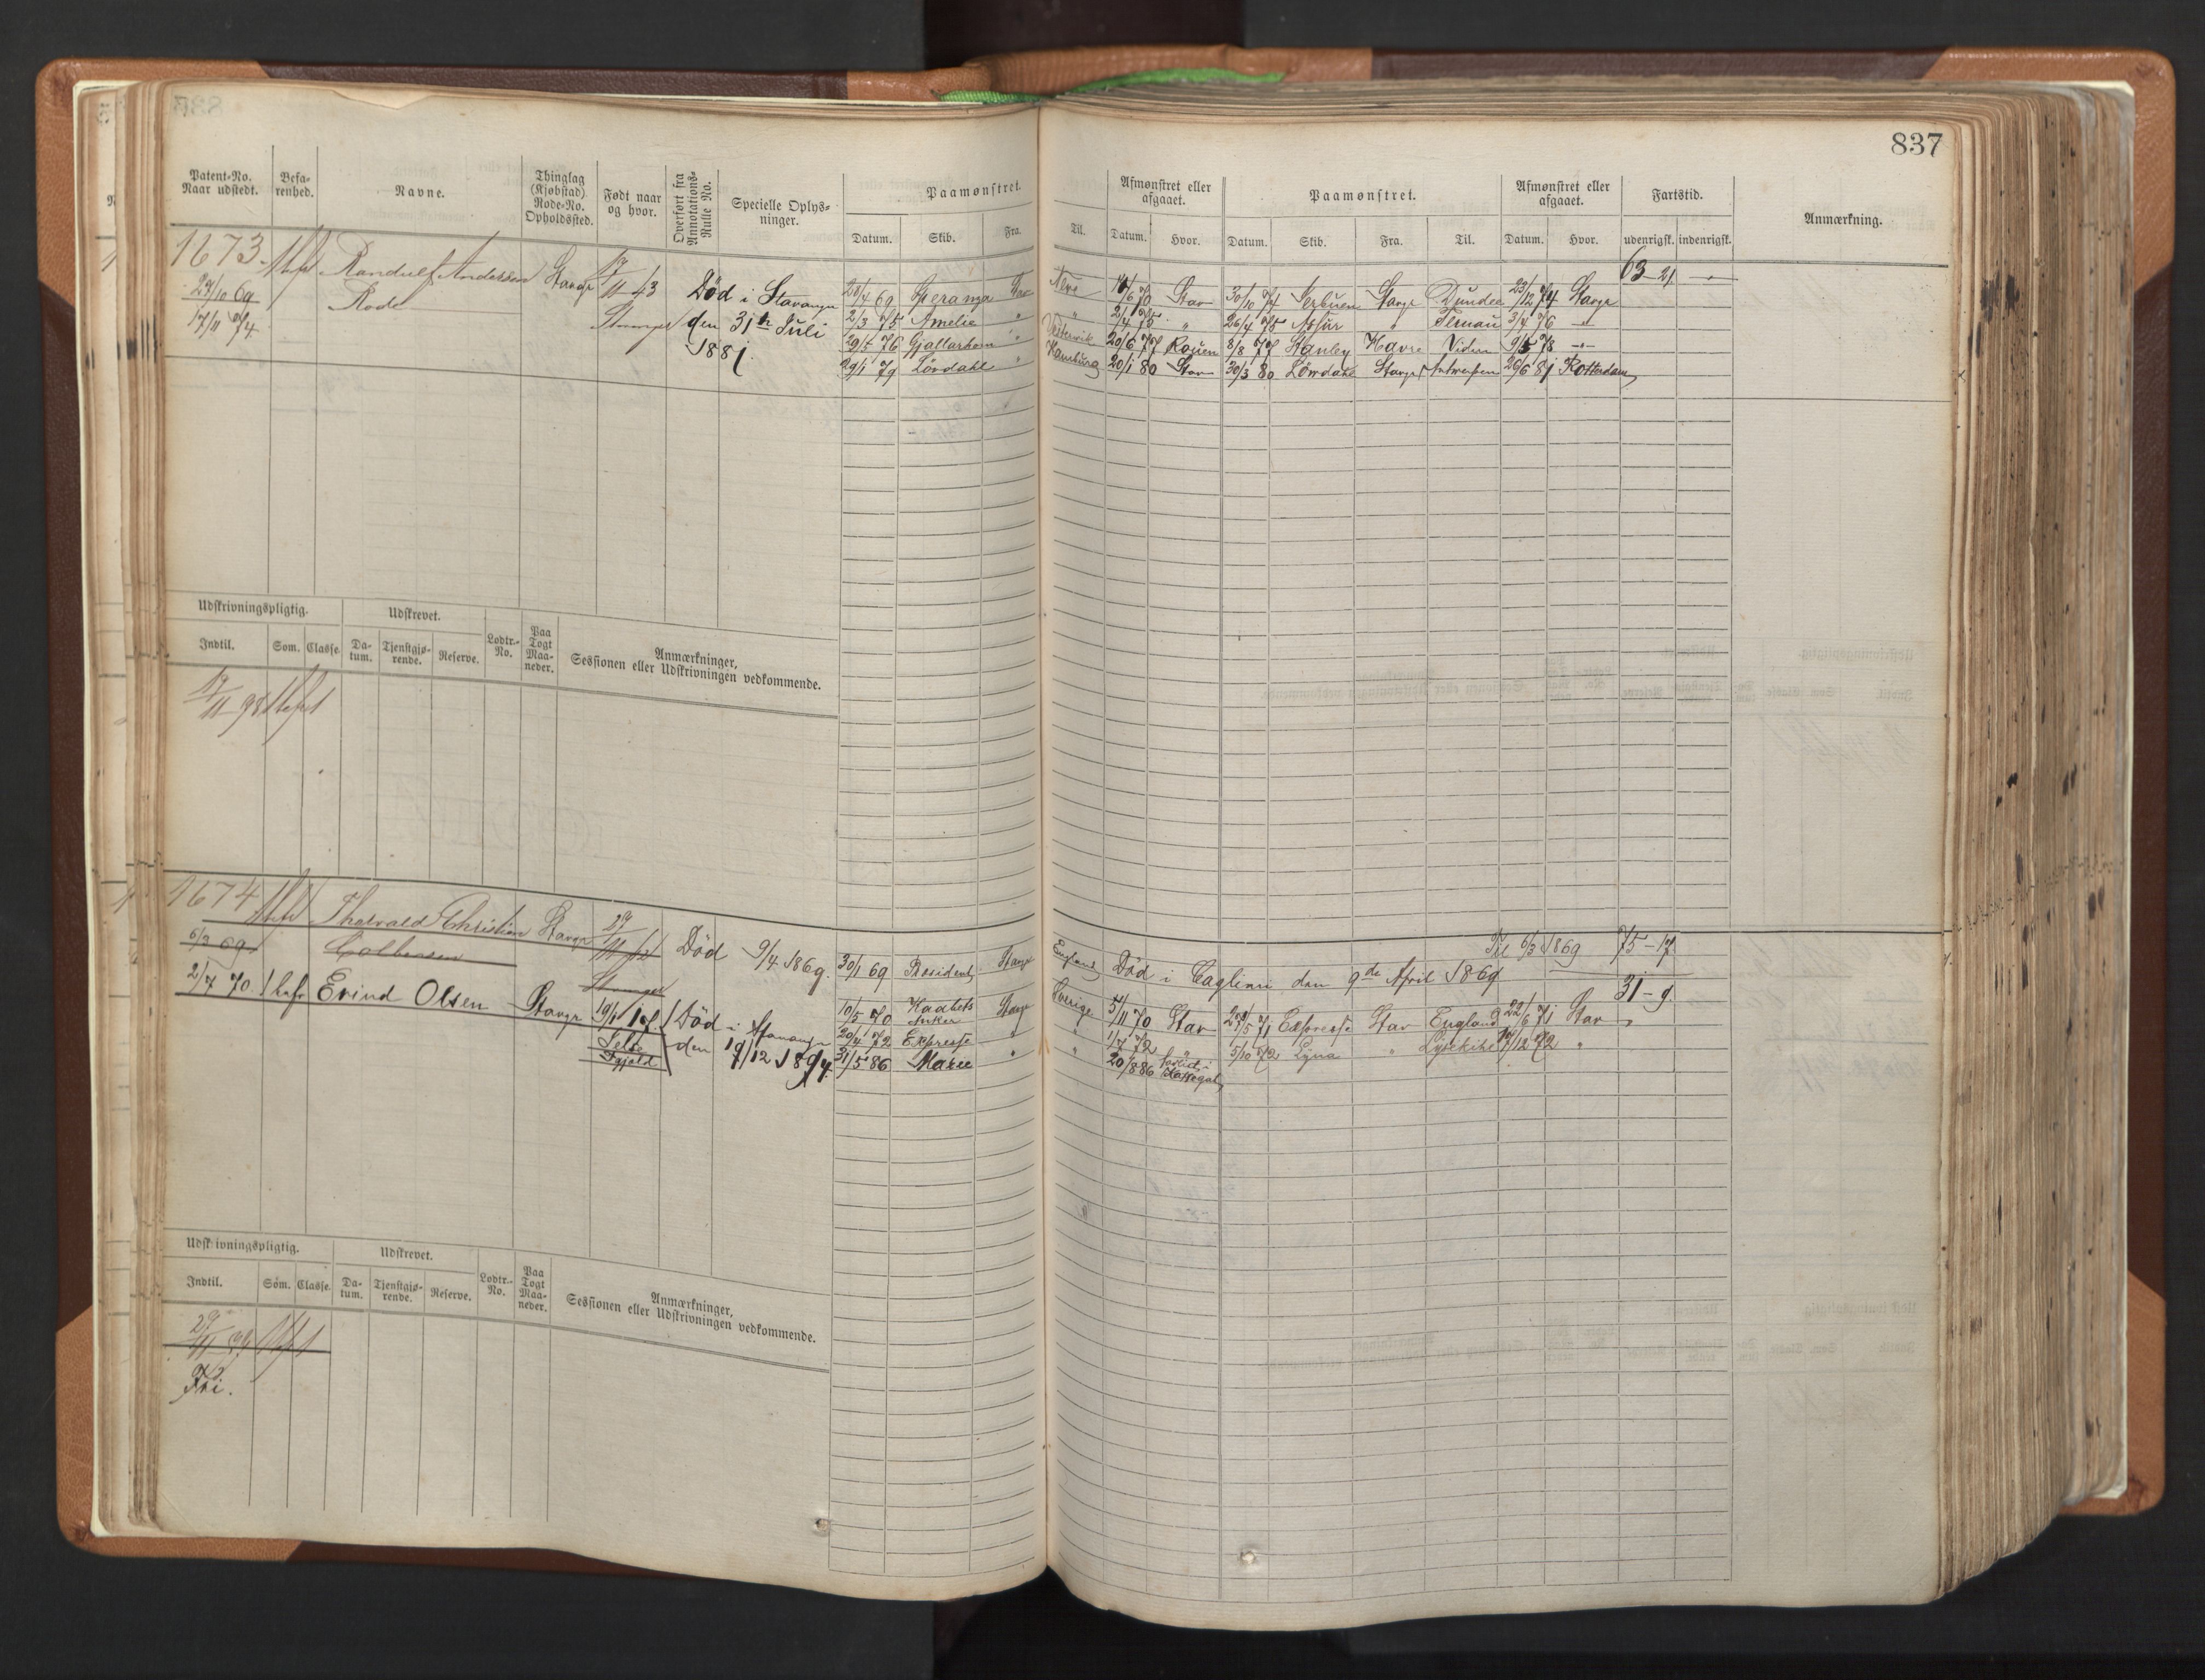 837
Patent-No. Naar udstedt. Befa-renhed. Navne. Thinglag (Kjøbstad) Rode-No. Opholdssted. Født naar og hvor. Overført fra Annotations-Rulle No. Specielle Oplys-ninger. Paamønstret. Afmønstret eller afgaaet. Paamønstret. Afmønstret eller afgaaet. Fartstid. Anmærkning.
Datum. Skib. Fra. Til. Datum. Hvor. Datum. Skib. Fra. Til. Datum. Hvor. udenrigsk. indenrigsk.
1673 Randulf Andersen Stavgr 17/11 43 63-21
27/10 69 Rode Død i Stavanger 28/4 69 Speranza Stav 70 Stav 30/10 74 Stavgr Dundee 23/12 74 Stavgr
17/11 74 Stavanger den 31te Juli 2/3 75 Amelie " " 2/4 75 " 26/4 75 Assur " 3/4 76 "
1881. 29/5 76 Gjallarhorn " Vestervik 20/6 77 Rouen 8/8 77 Stanley Havre 9/5 78 "
29/1 79 Lövdahl " Hamburg 20/1 80 Stav 30/3 80 Lövdahl Stavgr Antwerpen 26/6 81 Rotterdam
Udskrivningspligtig. Udskrevet. Lodtr.-No. Paa Togt Maa-neder. Anmærkninger, Sessionen eller Udskrivningen vedkommende.
Indtil. Som. Classe. Da-tum. Tjenstgjø-rende. Reserve.
17/11 98
1674 Thorvald Christian Stavgr 29/11
6/3 69 Død 9/4 1869. 30/1 69 President Stavgr England Død i Cagliari den 9de April 1869 Til 6/3 1869 75-17
Stavanger
31-9
2/7 70 Evind Olsen Stavgr 19/1 17 Død i Stavanger 10/5 70 Haabets Anker Stavgr Sverige 5/11 70 Stav 27/5 71 Expresse Stav England 22/6 71 Stav
den 19/12 1894. 20/4 72 Expresse " " 1/7 72 " 5/10 72 Lyna " Lysekihl 12/12 72 "
31/5 86 Marie " " 20/8 86 forlist
Udskrivningspligtig. Udskrevet. Lodtr.-No. Paa Togt Maa-neder. Anmærkninger, Sessionen eller Udskrivningen vedkommende.
Indtil. Som. Classe. Da-tum. Tjenstgjø-rende. Reserve.
29/11
Fri.